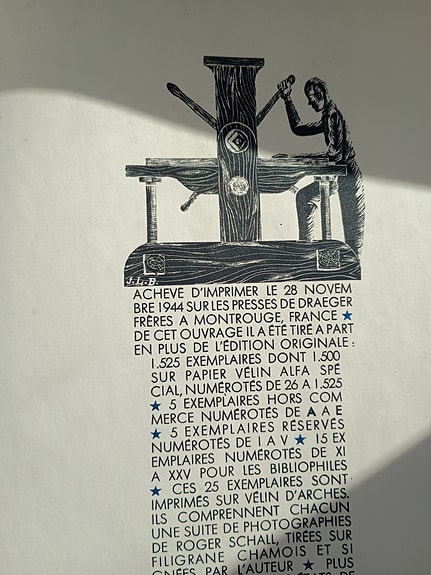 J.L.B.
ACHEVE D'IMPRIMER LE 28 NOVEM
BRE 1944 SUR LES PRESSES DE DRAEGER
FRÈRES A MONTROUGE, FRANCE ★
DE CET OUVRAGE IL A ÉTÉ TIRE A PART
EN PLUS DE L'ÉDITION ORIGINALE :
1.525 EXEMPLAIRES DONT 1.500
SUR PAPIER VÉLIN ALFA SPÉ
CIAL, NUMÉROTÉS DE 26 A 1.525
★ 5 EXEMPLAIRES HORS COM
MERCE NUMÉROTÉS DE A A E
★ 5 EXEMPLAIRES RÉSERVÉS
NUMÉROTÉS DE I A V ★ 15 EX
EMPLAIRES NUMÉROTÉS DE XI
A XXV POUR LES BIBLIOPHILES
★ CES 25 EXEMPLAIRES SONT
IMPRIMÉS SUR VÉLIN D'ARCHES.
ILS COMPRENNENT CHACUN
UNE SUITE DE PHOTOGRAPHIES
DE ROGER SCHALL, TIRÉES SUR
FILIGRANE CHAMOIS ET SI
GNÉES PAR L'AUTEUR ★ PLUS
ÉTATS DE